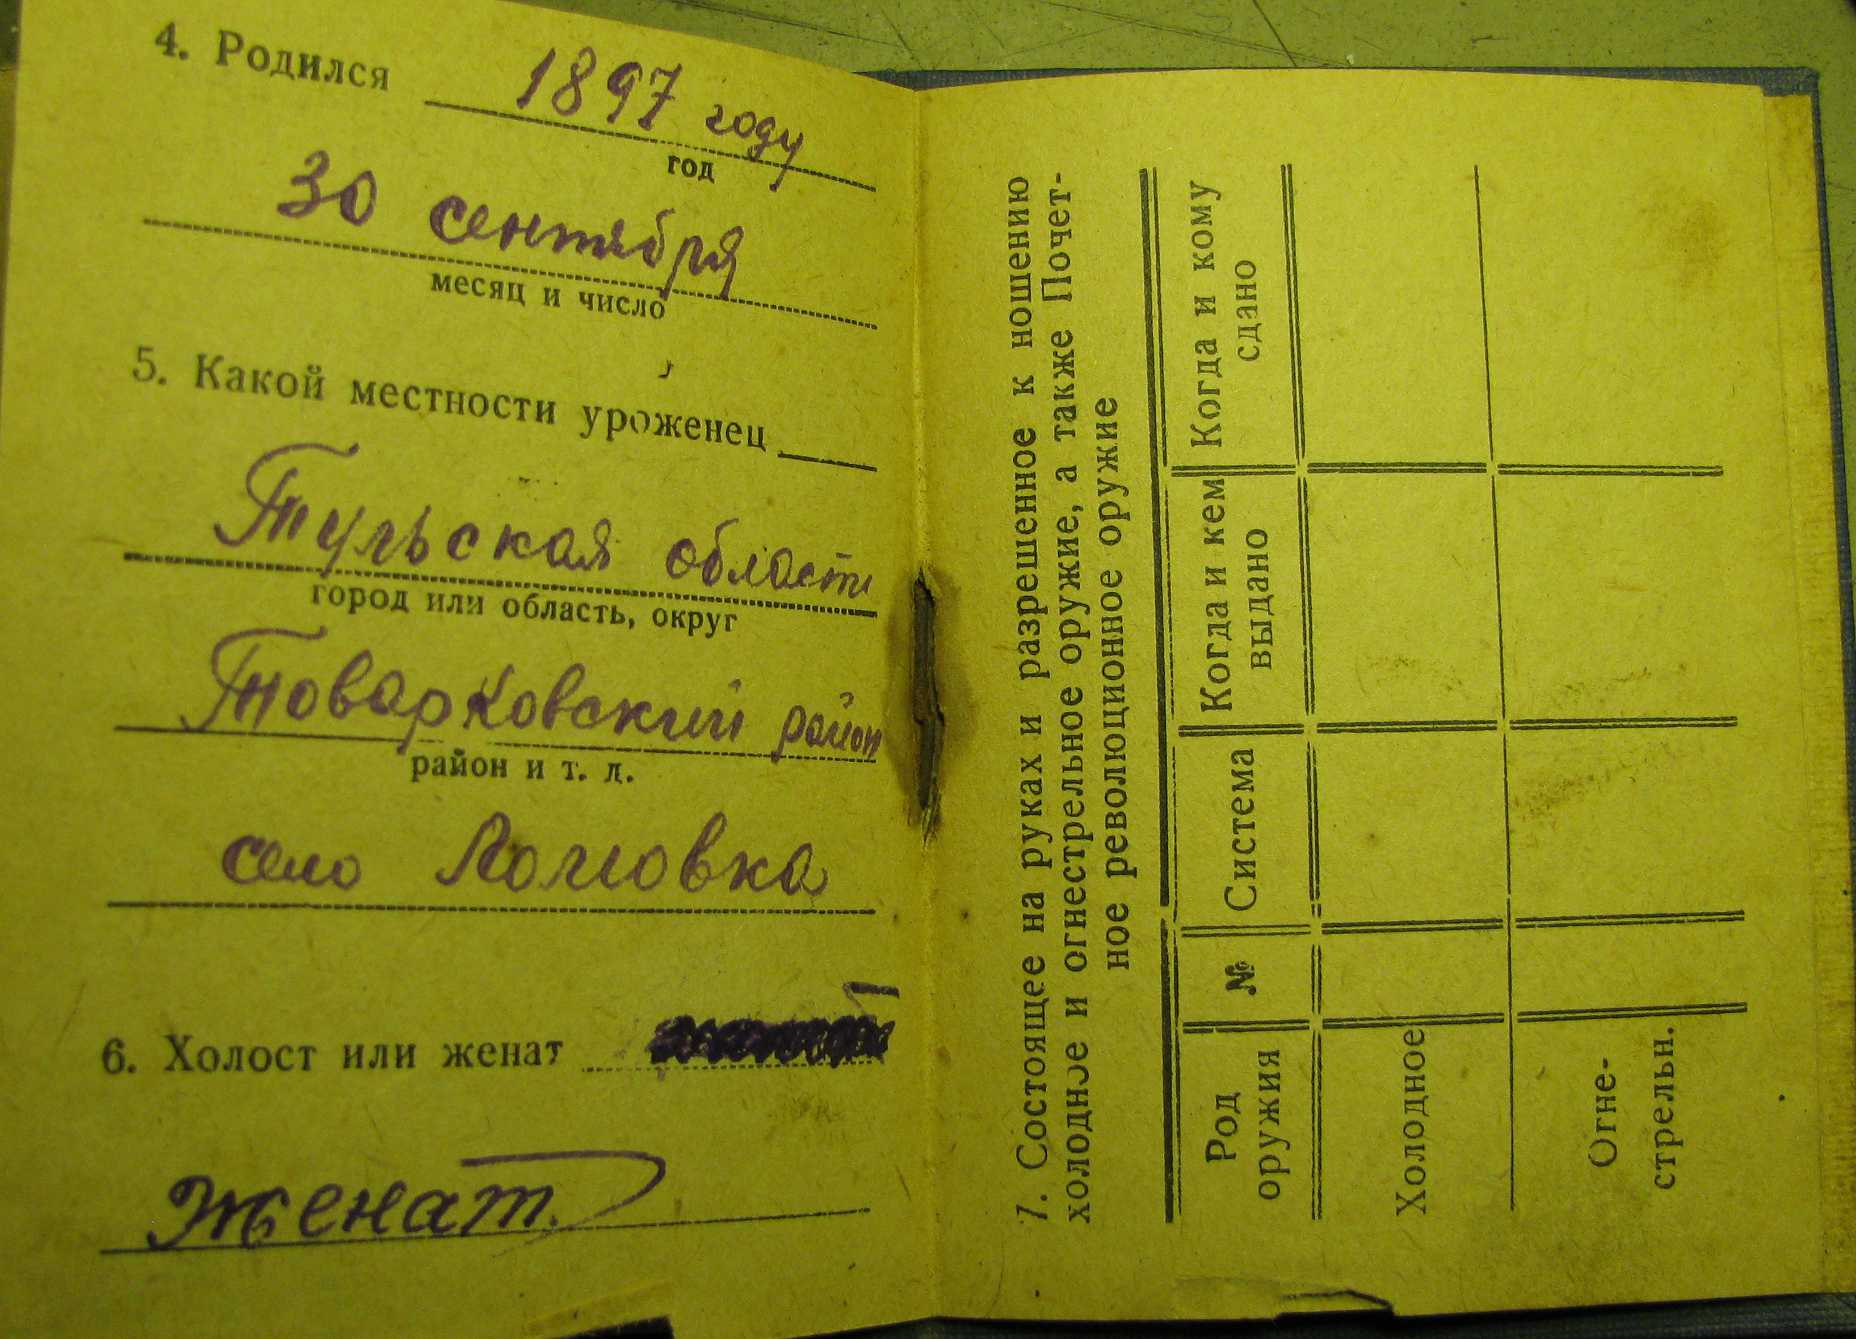 4. Родился 1897 году
год
30 сентября
месяц и число
5. Какой местности уроженец
Тульская области
город или область, округ
Товарковский район
район и т. д.
село
6. Холост или женат
женат.
7. Состоящее на руках и разрешенное к ношению
холодное и огнестрельное оружие, а также Почет-
ное революционное оружие
Род оружия № Система Когда и кем выдано Когда и кому сдано
Холодное
Огне-
стрельн.